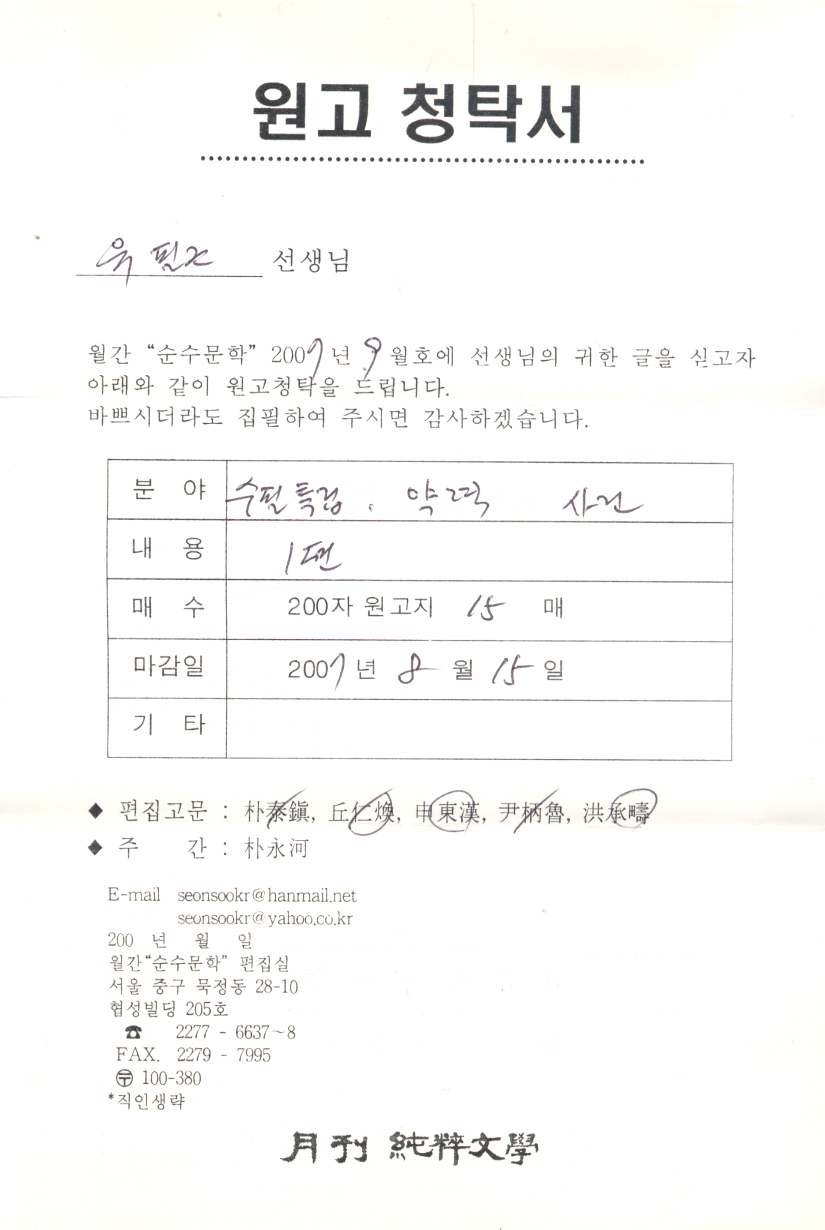 원고 청탁서
선생님
월간 “순수문학” 2007년 9월호에 선생님의 귀한 글을 싣고자
아래와 같이 원고청탁을 드립니다.
바쁘시더라도 집필하여 주시면 감사하겠습니다.
분 야 수필특집, 약력 사진
내 용 1편
매 수 200자 원고지 15 매
마감일 2007년 8 월 15 일
기 타
◆ 편집고문 : 朴泰鎭, 丘仁煥, 申東漢, 尹柄魯, 洪承疇
◆ 주 간 : 朴永河
E-mail seonsookr@hanmail.net
seonsookr@yahoo.co.kr
200 년 월 일
월간“순수문학” 편집실
서울 중구 묵정동 28-10
협성빌딩 205호
☎ 2277 - 6637~8
FAX. 2279 - 7995
〶 100-380
*직인생략
月刊 純粹文學